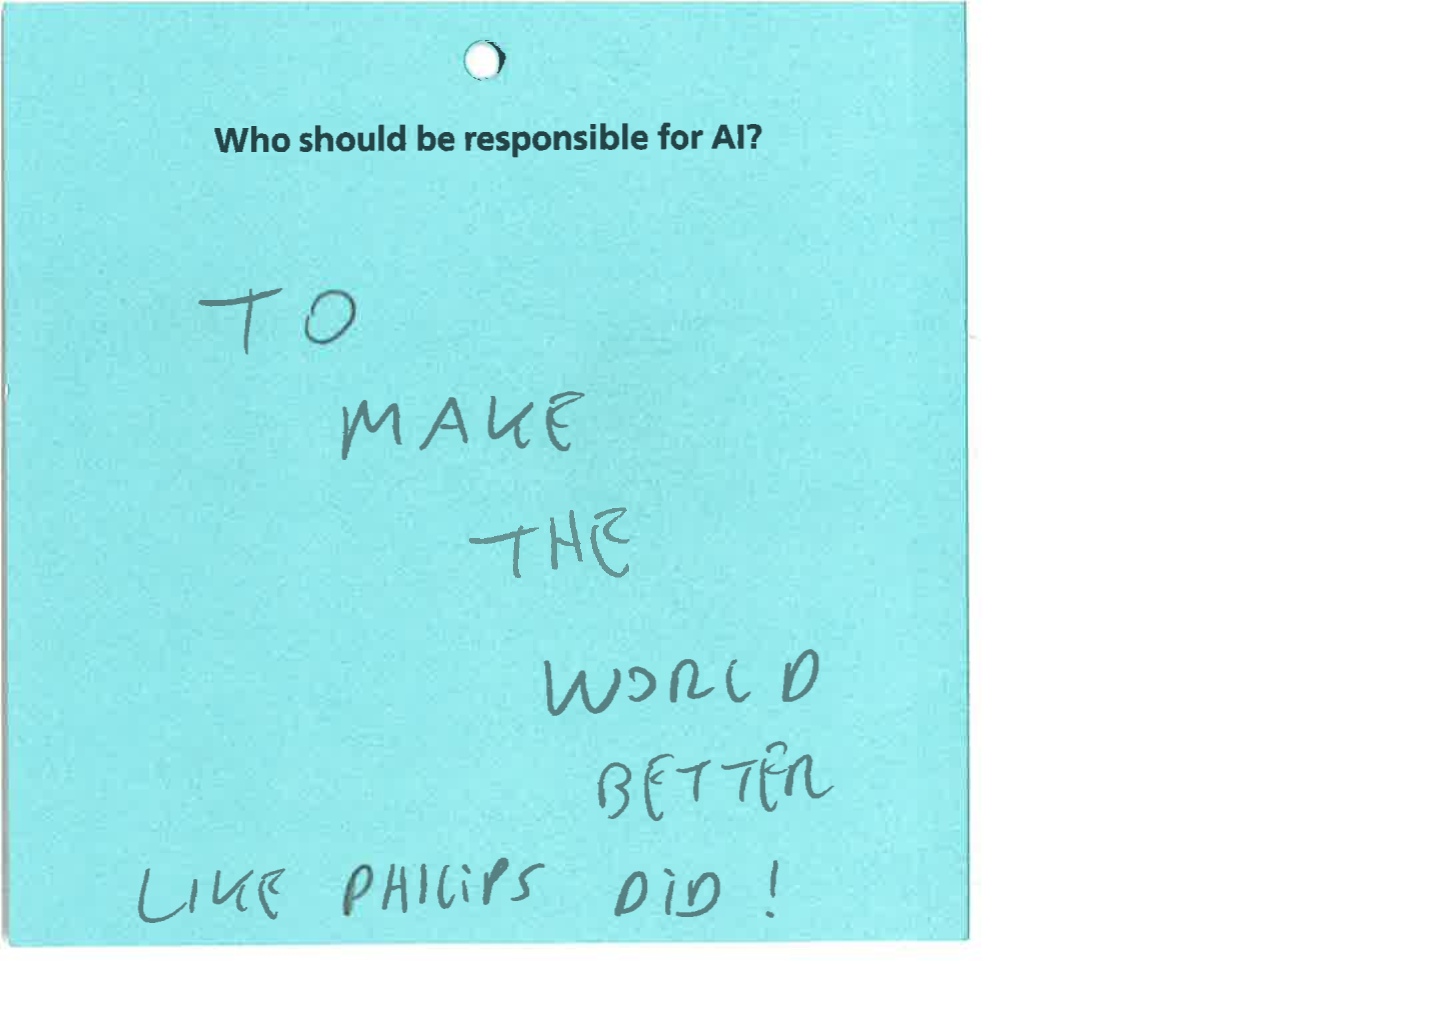 Who should be responsible for AI?
TO
MAKE
THE
WORLD
BETTER
LIKE PHILIPS DID !